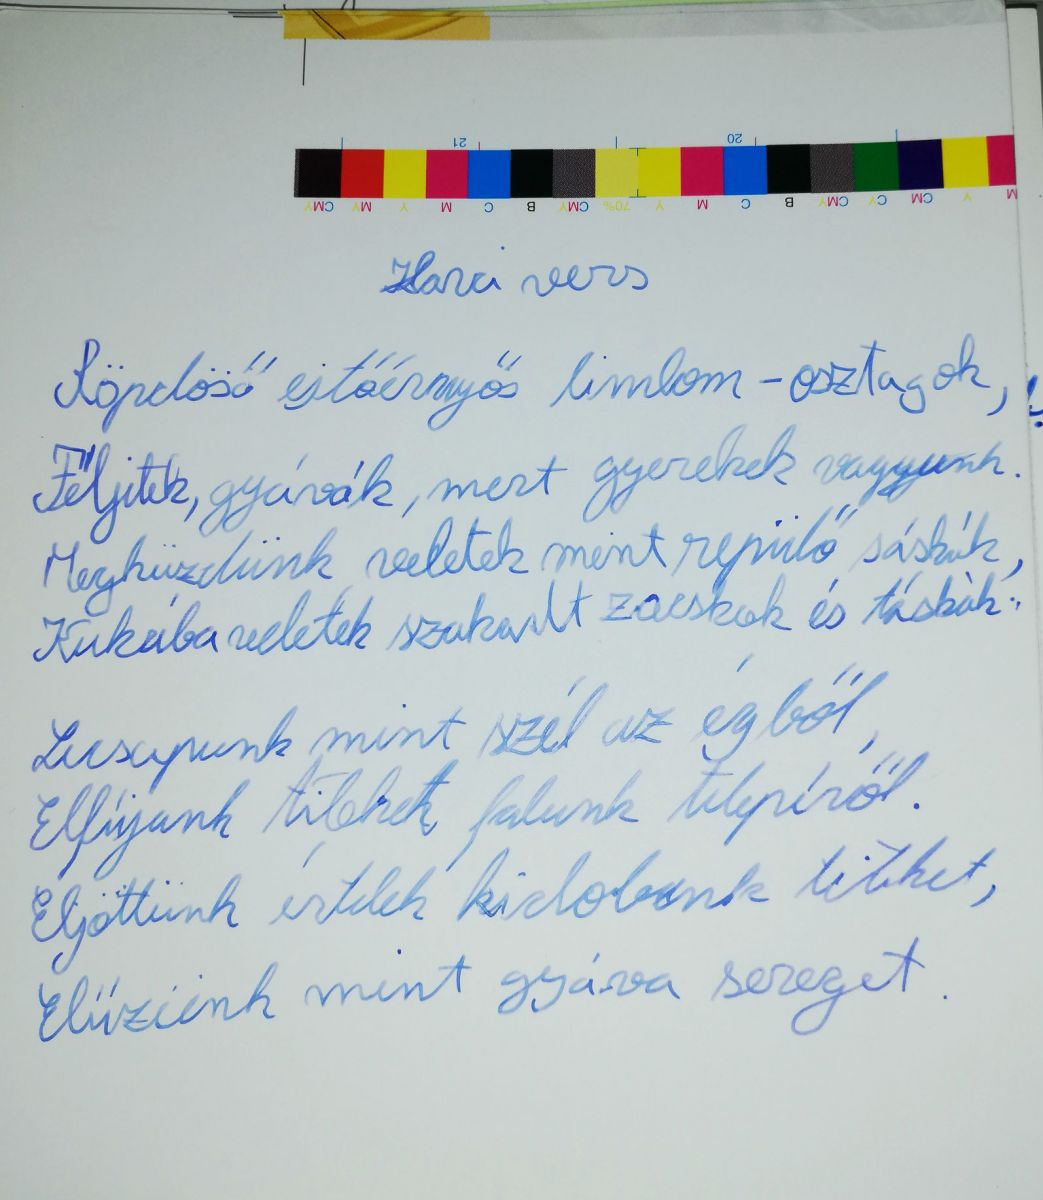 21 20
CMY MY Y M C B CMY 70% Y M C B CMY CY CM Y M
Harci vers
Röpdöső ejtőérnyős limlom-osztagok,
Féljetek, gyávák, mert gyerekek vagyunk.
Megküzdünk veletek mint repülő sáskák,
Kukába veletek szakadt zacskók és táskák.
Lecsapunk mint szél az égből,
Elfújunk titeket falunk teléről.
Eljöttünk értetek kidobunk titeket,
Elűzünk mint gyáva sereget.